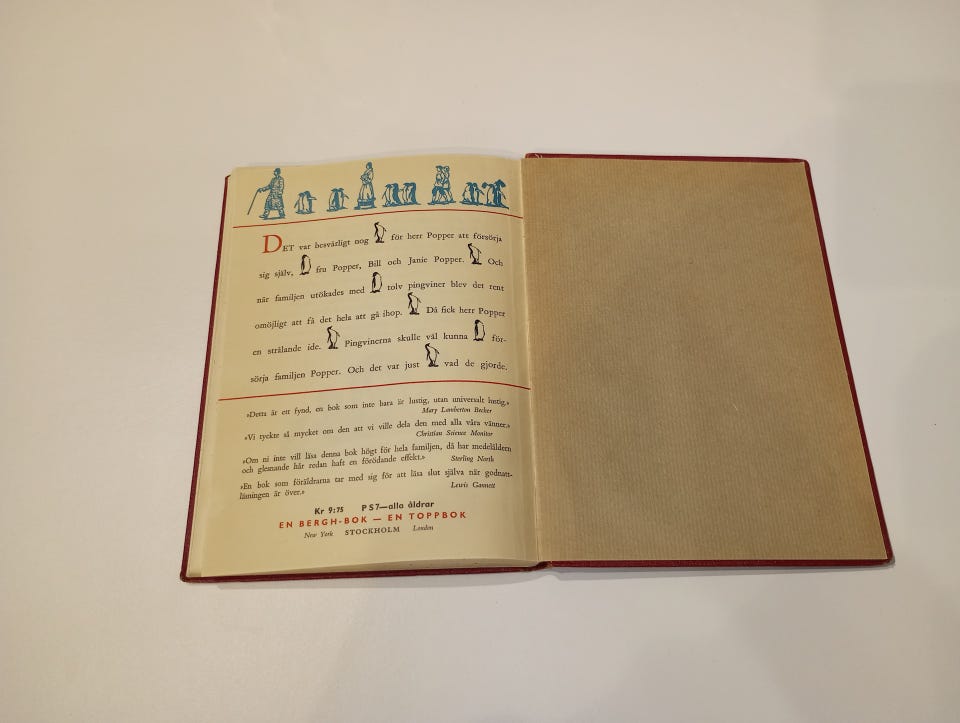 DET var besvärligt nog för herr Popper att försörja
sig själv, fru Popper, Bill och Janie Popper. Och
när familjen utökades med tolv pingviner blev det rent
omöjligt att få det hela att gå ihop. Då fick herr Popper
en strålande ide. Pingvinerna skulle väl kunna för-
sörja familjen Popper. Och det var just vad de gjorde.
»Detta är ett fynd, en bok som inte bara är lustig, utan universalt lustig.»
Mary Lamberton Becker
»Vi tyckte så mycket om den att vi ville dela den med alla våra vänner.»
Christian Science Monitor
»Om ni inte vill läsa denna bok högt för hela familjen, då har medelåldern
och glesnande hår redan haft en förödande effekt.»
Sterling North
»En bok som föräldrarna tar med sig för att läsa slut själva när godnatt-
läsningen är över.»
Lewis Gannett
Kr 9:75 PS7—alla åldrar
EN BERGH-BOK — EN TOPPBOK
New York STOCKHOLM London